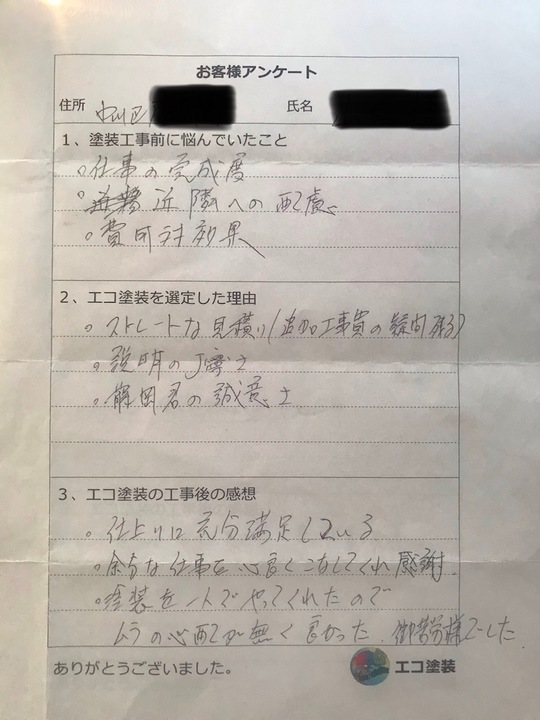 お客様アンケート
住所 中川区 氏名
1、塗装工事前に悩んでいたこと
○仕事の完成度
○近隣への配慮
○費用対効果
2、エコ塗装を選定した理由
○ストレートな見積り(追加工事費の疑問残る)
○説明の丁寧さ
○君の誠意さ
3、エコ塗装の工事後の感想
○仕上りに充分満足している
○余分な仕事を心良くこなしてくれ感謝.
○塗装を一人でやってくれたので
ムラの心配が無く良かった.御苦労様でした
ありがとうございました。 エコ塗装